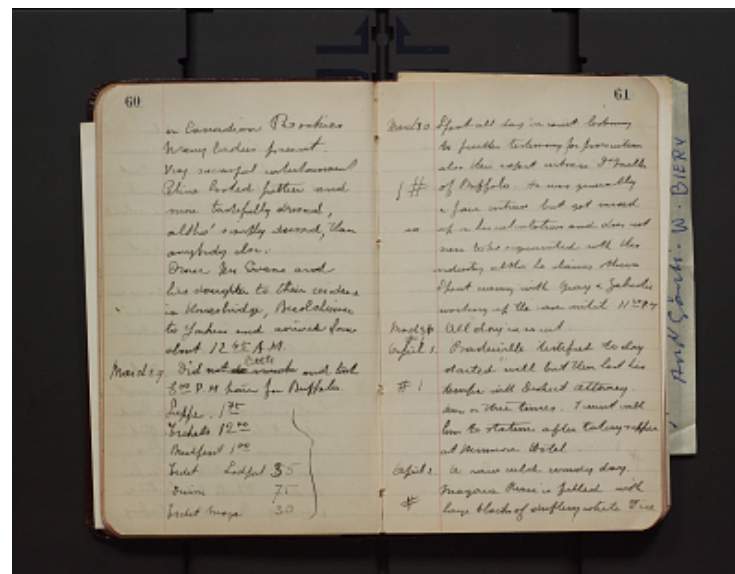 60
in Canadian Rockies
Many ladies present.
Very successful entertainment
looked better and
more tastefully dressed,
altho' dressed, than
anybody else.
Mr Evans and
his daughter to their residence
in
to Yonkers and arrived home
about 12 45 A.M.
March 29 Did not do much and took
8 00 P.M. train for Buffalo.
Supper 1 75
Tickets 12 00
Breakfast 1 00
Ticket Lockport 35
Dinner 75
Ticket 30
61
March 30 Spent all day in court listening
to further testimony for prosecution
also their expert witness Dr
# of Buffalo. He was generally
a fair witness but got mixed
up on and does not
seem to be acquainted with the
industry altho he claims
Spent evening with Gray &
working up the case until 11 00 P.M.
All day in court.
April 1 testified to-day
# 1 started well but then lost his
temper with District Attorney
two or three times. I went with
him to station after taking supper
at Hotel
April 2 A raw cold windy day.
# River is filled with
huge blocks of white Ice
W. BIERY